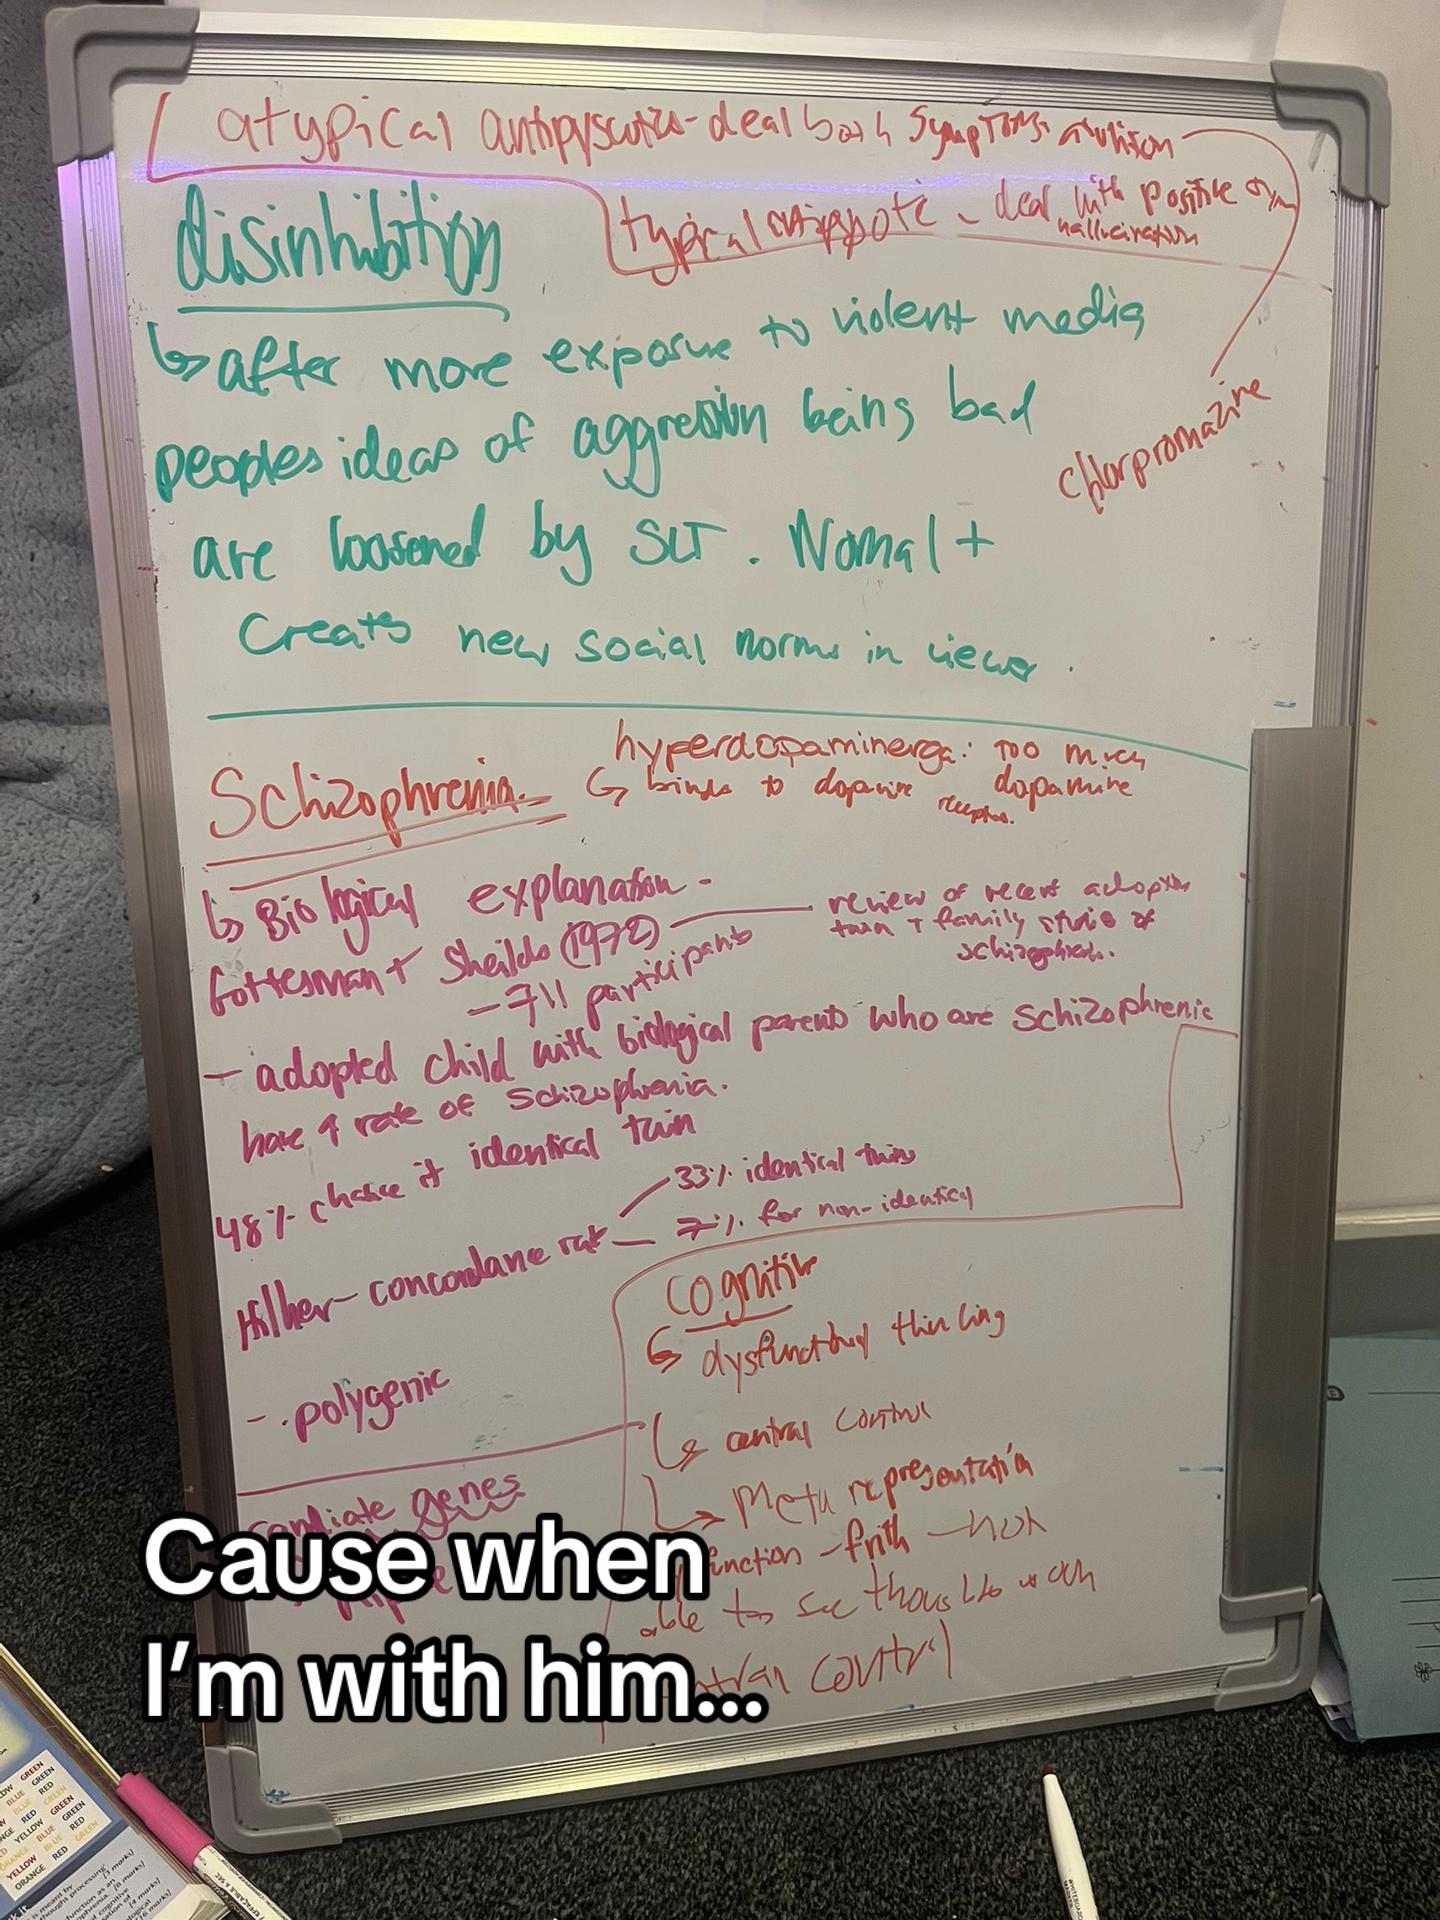 atypical antipyscotics - deal both symptoms avolition
typical antipyscotic - deal with positive sym
hallucination
chlorpromazine
disinhibition
↳ after more exposure to violent media
peoples ideas of aggression being bad
are loosened by SLT. Normal +
Creates new social norms in viewer.
Schizophrenia.
hyperdopaminerga: Too much
dopamine
↳ binds to dopamine receptors.
↳ Biological explanation -
Gottesman + Sheilds (1972)
- 711 participants
review of recent adoption
twin + family studies of
schizophrenia.
- adopted child with biological parents who are schizophrenic
have ↑ rate of schizophrenia.
48% chance if identical twin
Hilker - concordance rate
33% identical twins
7% for non-identical
- . polygenic
candiate genes
Cognitive
↳ dysfunctional thinking
↳ central control
↳ Meta representation
function - frith - not
able to see thoughts
control
Cause when
I'm with him...
YELLOW GREEN
BLUE RED
ORANGE RED GREEN